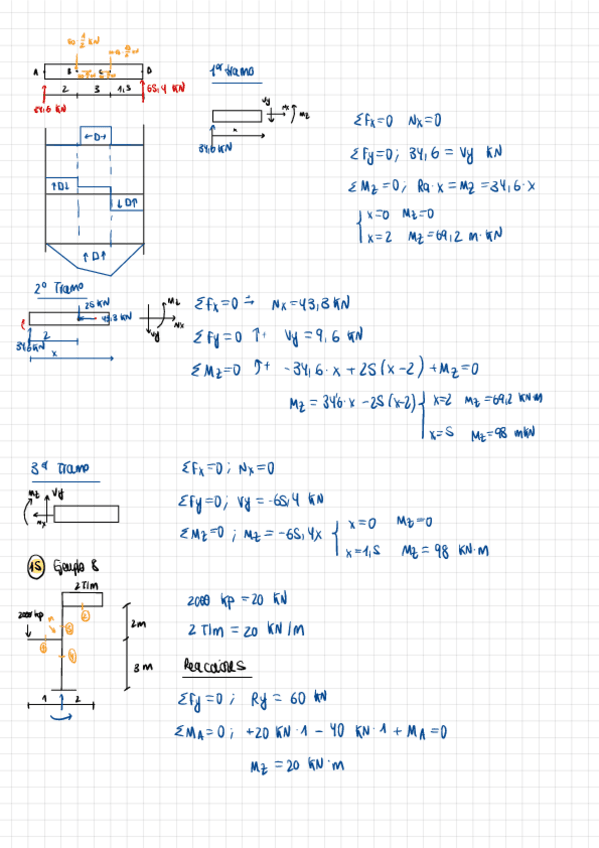 A B C D
2 3 1,5 65,4 KN
34,6 KN
1er tramo
Vy Nx Mz
x
34,6 KN
ΣFx=0 Nx=0
ΣFy=0; 34,6 = Vy KN
ΣMz=0; Ra·x = Mz = 34,6·x
x=0 Mz=0
x=2 Mz=69,2 m·KN
←D→
↑D↓
↓D↑
↑D↑
2º Tramo
25 KN
43,3 KN
Mz
Nx
Vy
2
34,6 KN
x
ΣFx=0 → Nx=43,3 KN
ΣFy=0 ↑+ Vy=9,6 KN
ΣMz=0 ↑+ -34,6·x + 25(x-2) + Mz=0
Mz = 346·x - 25(x-2) x=2 Mz=69,2 KN·m
x=5 Mz=98 mKN
3er Tramo
Mz Vy
Nx
ΣFx=0; Nx=0
ΣFy=0; Vy=-65,4 KN
ΣMz=0; Mz=-65,4x
x=0 Mz=0
x=1,5 Mz=98 KN·m
15 Ejemplo 8
2T/m
2000 kp
2m
3m
1 2
2000 kp = 20 KN
2 T/m = 20 KN/m
Reacciones
ΣFy=0; Ry = 60 KN
ΣMA=0; +20 KN·1 - 40 KN·1 + MA=0
Mz = 20 KN·m